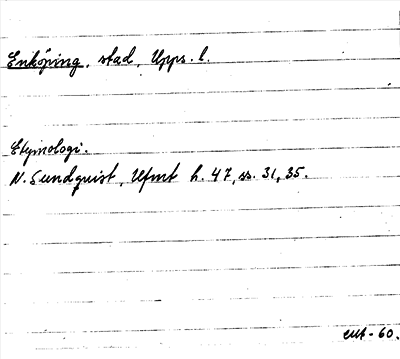 Enköping, stad, Upps. l.
Etymologi.
N. Sundquist, Ufmt h. 47, ss. 31, 35.
-60.